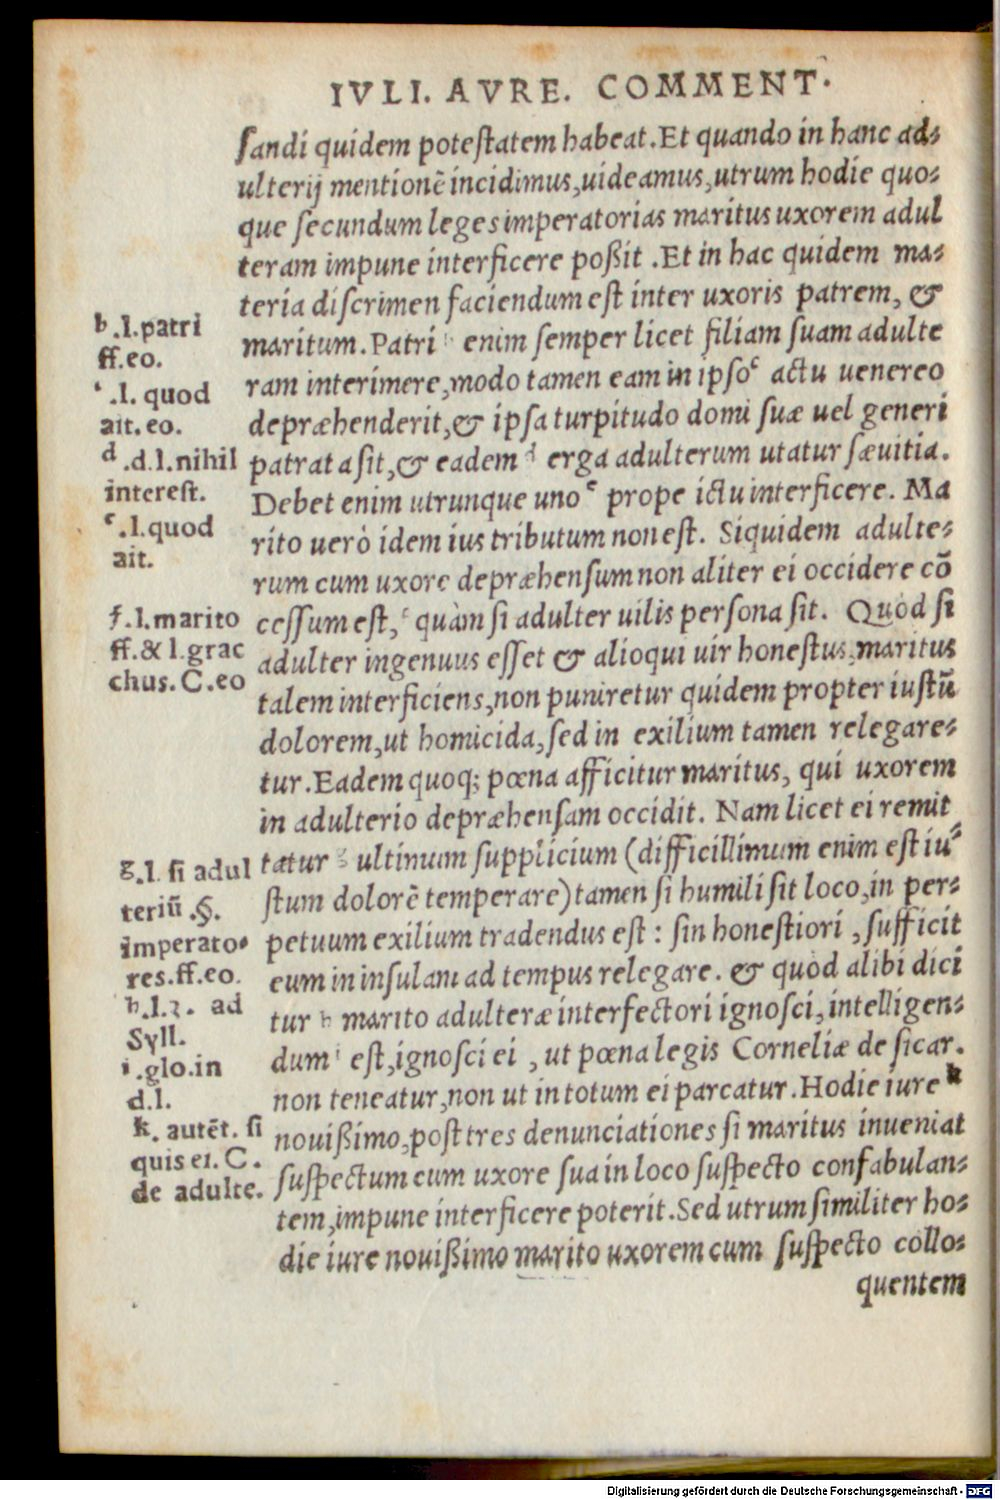 IVLI. AVRE. COMMENT.
ſandi quidem poteſtatem habeat. Et quando in hanc ad⸗
ulterij mentionẽ incidimus, uideamus, utrum hodie quo⸗
que ſecundum leges imperatorias maritus uxorem adul
teram impune interficere poßit. Et in hac quidem ma⸗
teria diſcrimen faciendum eſt inter uxoris patrem, &
maritum. Patri b enim ſemper licet filiam ſuam adulte
ram interimere, modo tamen eam in ipſo c actu uenereo
depræhenderit, & ipſa turpitudo domi ſuæ uel generi
patrata ſit, & eadem d erga adulterum utatur ſæuitia.
Debet enim utrunque uno e prope ictu interficere. Ma
rito uerò idem ius tributum non eſt. Siquidem adulte⸗
rum cum uxore depræhenſum non aliter ei occidere cõ
ceſſum eſt, f quàm ſi adulter uilis perſona ſit. Quòd ſi
adulter ingenuus eſſet & alioqui uir honeſtus, maritus
talem interficiens, non puniretur quidem propter iuſtũ
dolorem, ut homicida, ſed in exilium tamen relegare⸗
tur. Eadem quoq; pœna afficitur maritus, qui uxorem
in adulterio depræhenſam occidit. Nam licet ei remit
tatur g ultimum ſupplicium (difficillimum enim eſt iu⸗
ſtum dolorẽ temperare) tamen ſi humili ſit loco, in per⸗
petuum exilium tradendus eſt: ſin honeſtiori, ſufficit
eum in inſulam ad tempus relegare. & quòd alibi dici
tur h marito adulteræ interfectori ignoſci, intelligen⸗
dum i eſt, ignoſci ei, ut pœna legis Corneliæ de ſicar.
non teneatur, non ut in totum ei parcatur. Hodie iure k
nouißimo, poſt tres denunciationes ſi maritus inueniat
ſuſpectum cum uxore ſua in loco ſuſpecto confabulan⸗
tem, impune interficere poterit. Sed utrum ſimiliter ho⸗
die iure nouißimo marito uxorem cum ſuſpecto collo⸗
quentem
b .l. patri
ff. eo.
c .l. quod
ait. eo.
d .d.l. nihil
intereſt.
e .l. quod
ait.
f .l. marito
ff. & l. grac
chus. C. eo
g .l. ſi adul
teriũ .§.
imperato⸗
res. ff. eo.
h .l.3. ad
Syll.
i .glo. in
d.l.
k. autẽt. ſi
quis ei. C.
de adulte.
Digitalisierung gefördert durch die Deutsche Forschungsgemeinschaft - DFG